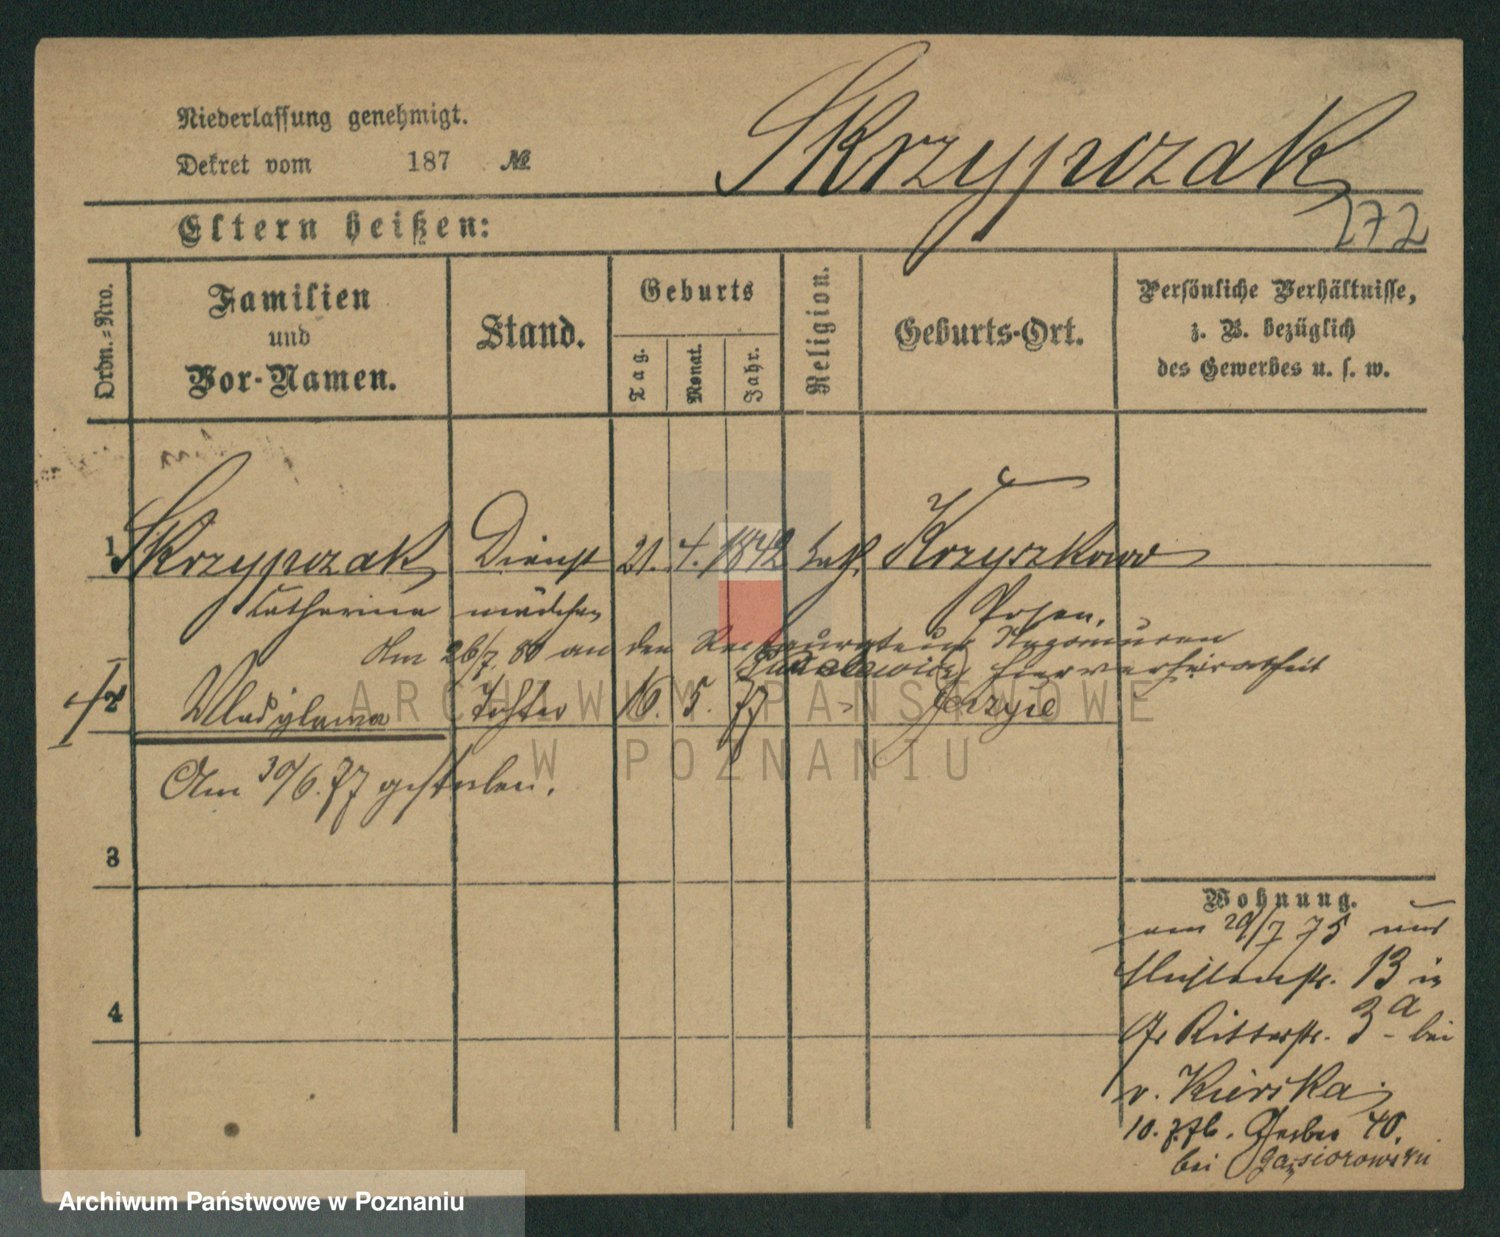 Niederlassung genehmigt.
Dekret vom 187 №
Skrzypczak
272
Eltern heißen:
Ordn.-Nro.
Familien und Vor-Namen.
Stand.
Geburts
Tag.
Monat.
Jahr.
Religion.
Geburts-Ort.
Persönliche Verhältnisse,
z. B. bezüglich
des Gewerbes u. s. w.
1 Skrzypczak Dienst 21. 4. 1842 kath. Krzyszkowo
Catharina mädchen Posen.
Am 26/7. 80 an den Restaurateur
hier verheirathet
2 Wladislawa Tochter 16. 5. 77 Jerzyce
Am 30/6. 77 gestorben.
3
4
Wohnung.
29/7 75 aus
13 in
Gr Ritterstr. 3a bei
v. Kierska
10. 7.76. Gerber 40.
bei Gąsiorowski
ARCHIWUM PAŃSTWOWE
W POZNANIU
Archiwum Państwowe w Poznaniu